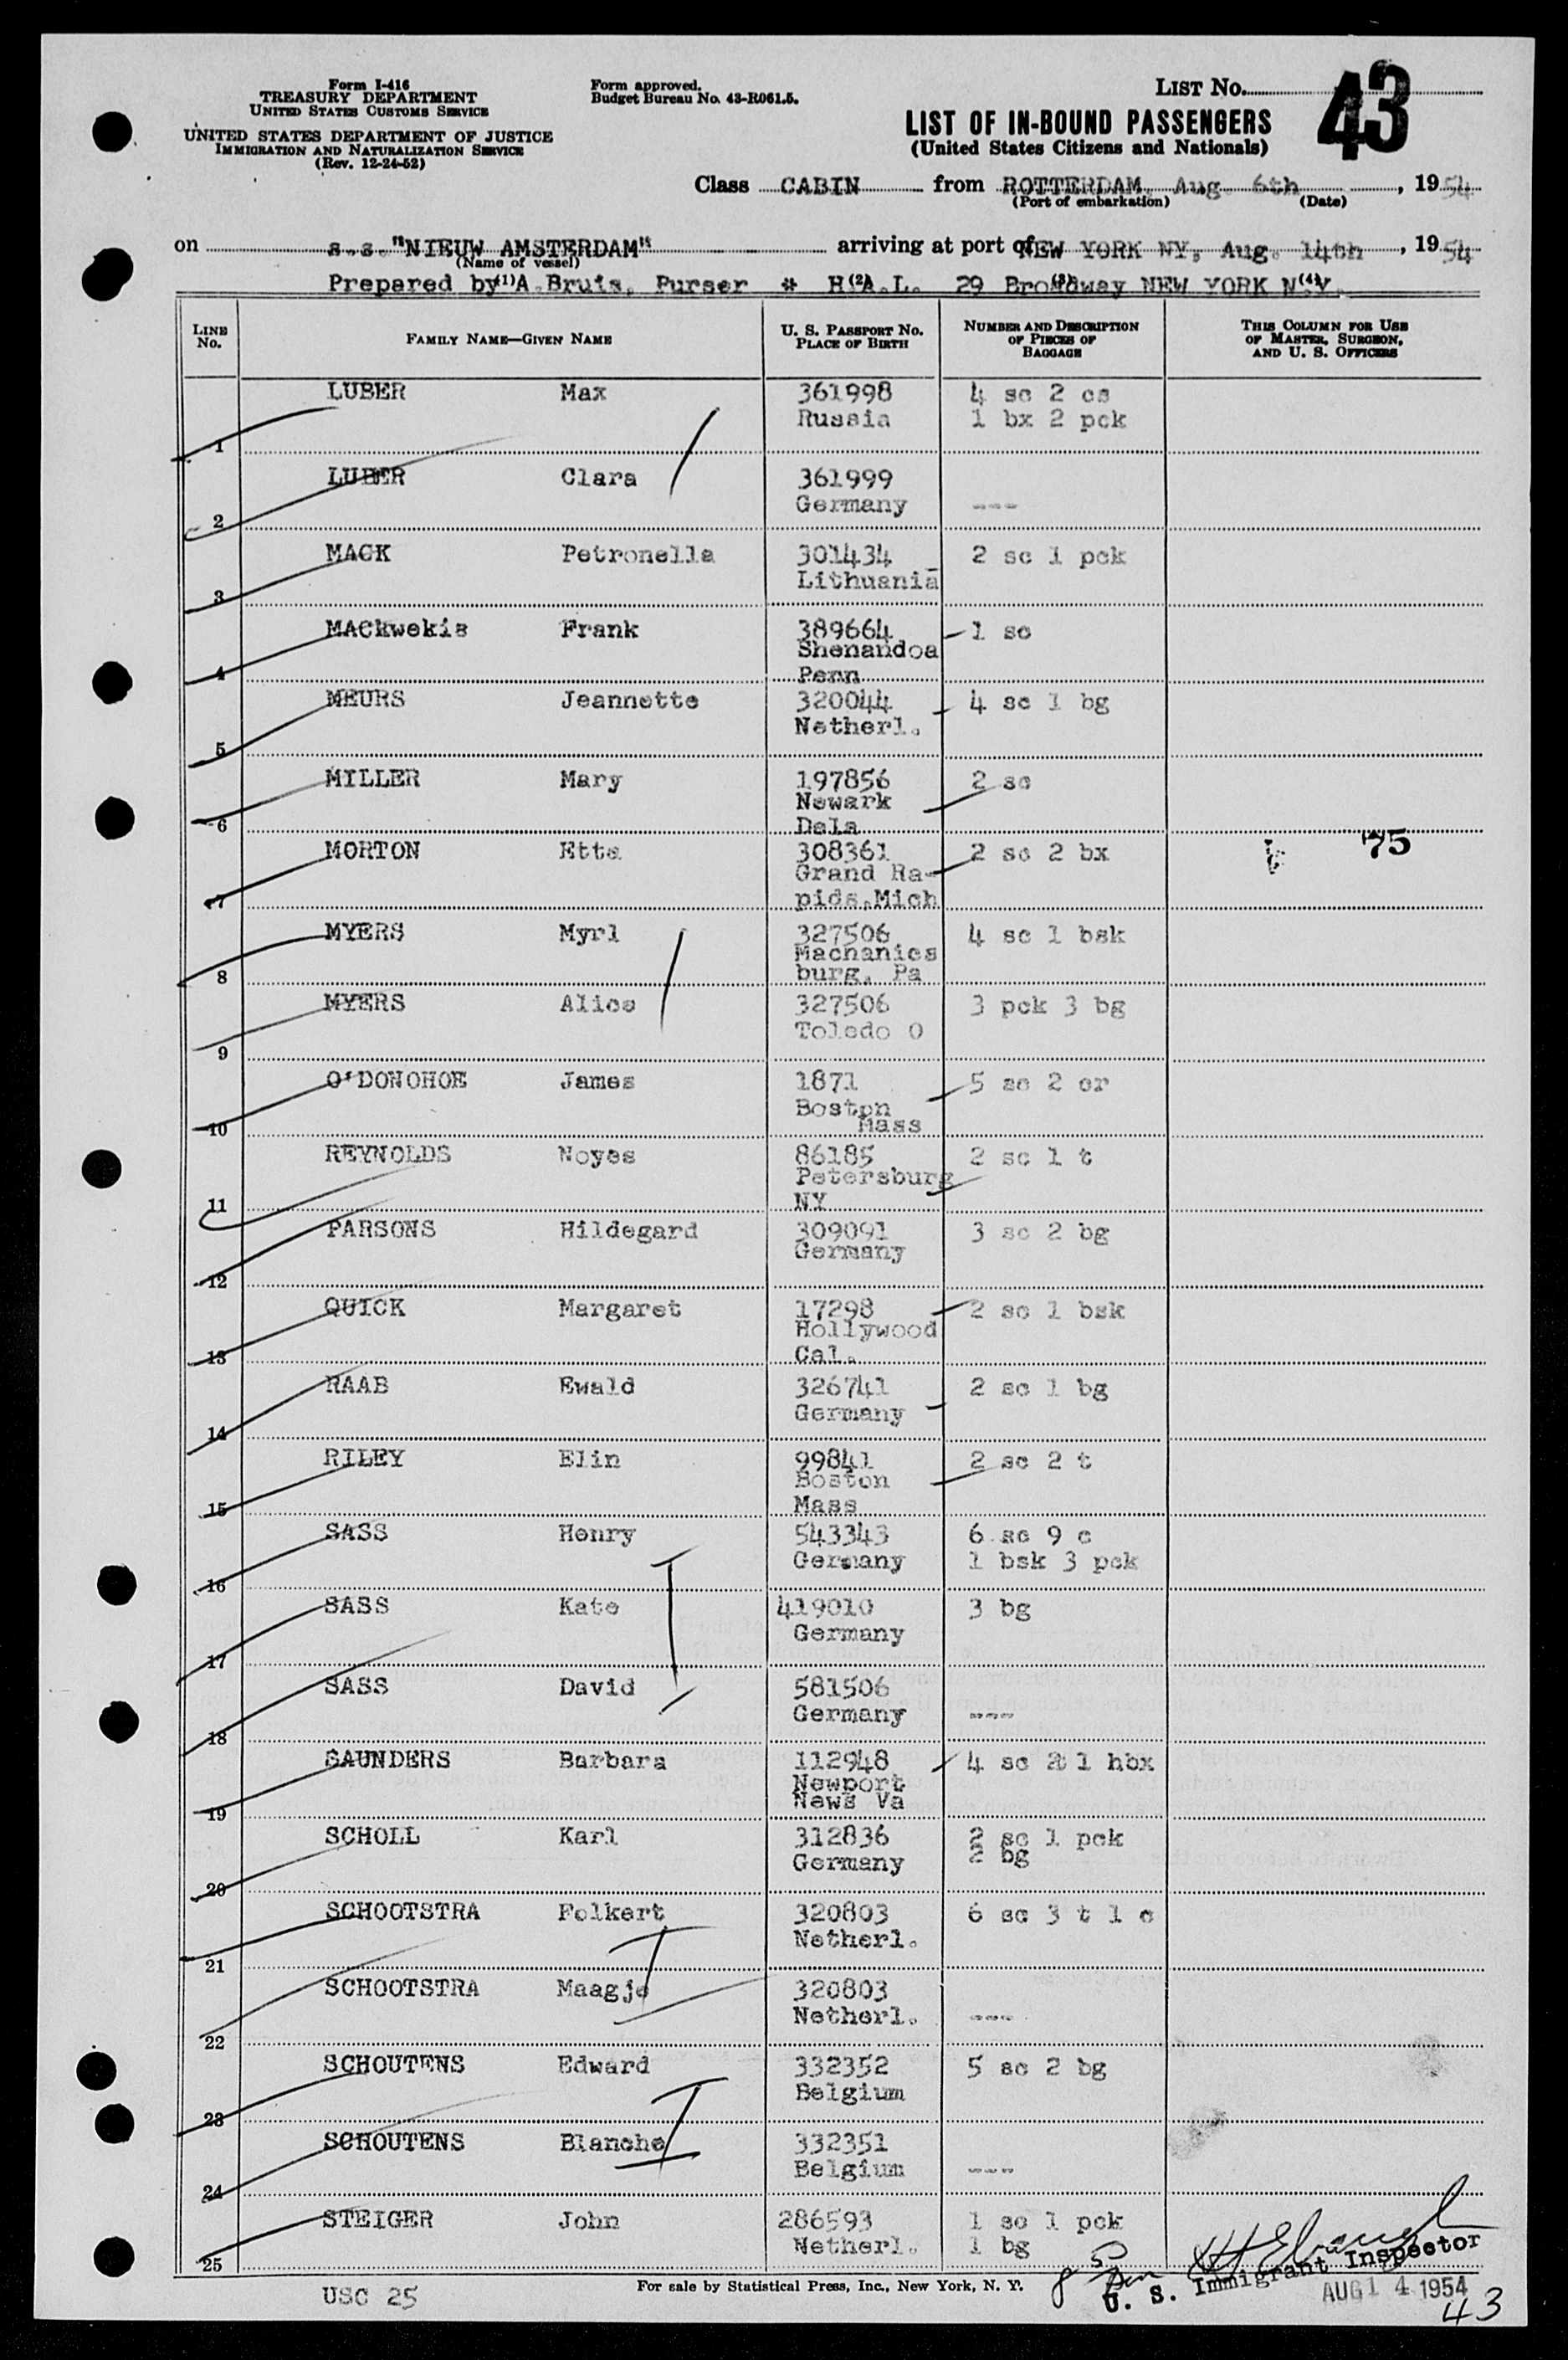 Form I-416
TREASURY DEPARTMENT
UNITED STATES CUSTOMS SERVICE
UNITED STATES DEPARTMENT OF JUSTICE
IMMIGRATION AND NATURALIZATION SERVICE
(Rev. 12-24-52)
Form approved.
Budget Bureau No. 43-R061.5.
LIST No. 43
LIST OF IN-BOUND PASSENGERS
(United States Citizens and Nationals)
Class CABIN from ROTTERDAM, Aug. 6th, 1954
(Port of embarkation) (Date)
on s.s. "NIEUW AMSTERDAM" arriving at port of NEW YORK NY, Aug. 14th, 1954
(Name of vessel)
Prepared by (1) A.Bruis, Purser * H(2)A.L. 29 Broadway (3) NEW YORK N(4)Y.
LINE No. FAMILY NAME—GIVEN NAME U. S. PASSPORT No. PLACE OF BIRTH NUMBER AND DESCRIPTION OF PIECES OF BAGGAGE THIS COLUMN FOR USE OF MASTER, SURGEON, AND U. S. OFFICERS
LUBER Max 361998 4 sc 2 cs
1 Russia 1 bx 2 pck
LUBER Clara 361999
2 Germany ---
MACK Petronella 301434 2 sc 1 pck
3 Lithuania
MACkwekis Frank 389664 1 sc
Shenandoa
4 Penn
MEURS Jeannette 320044 4 sc 1 bg
5 Netherl.
MILLER Mary 197856 2 sc
Newark
6 Dela
MORTON Etta 308361 2 sc 2 bx 75
Grand Ra-
7 pids.Mich
MYERS Myrl 327506 4 sc 1 bsk
Machanics
8 burg, Pa
MYERS Alice 327506 3 pck 3 bg
9 Toledo O
O'DONOHOE James 1871 5 sc 2 cr
Boston
10 Mass
REYNOLDS Noyes 86185 2 sc 1 t
Petersburg
11 NY
PARSONS Hildegard 309091 3 sc 2 bg
12 Germany
QUICK Margaret 17298 2 sc 1 bsk
Hollywood
13 Cal.
RAAB Ewald 326741 2 sc 1 bg
14 Germany
RILEY Elin 99841 2 sc 2 t
Boston
15 Mass
SASS Henry 543343 6 sc 9 c
16 Germany 1 bsk 3 pck
SASS Kate 419010 3 bg
17 Germany
SASS David 581506
18 Germany ---
SAUNDERS Barbara 112948 4 sc 1 hbx
Newport
19 News Va
SCHOLL Karl 312836 2 sc 1 pck
20 Germany 2 bg
SCHOOTSTRA Folkert 320803 6 sc 3 t 1 c
21 Netherl.
SCHOOTSTRA Maagje 320803
22 Netherl. ---
SCHOUTENS Edward 332352 5 sc 2 bg
23 Belgium
SCHOUTENS Blanche 332351
24 Belgium ---
STEIGER John 286593 1 sc 1 pck
25 Netherl. 1 bg
USC 25
For sale by Statistical Press, Inc., New York, N. Y.
U. S. Immigrant Inspector
AUG 14 1954
43